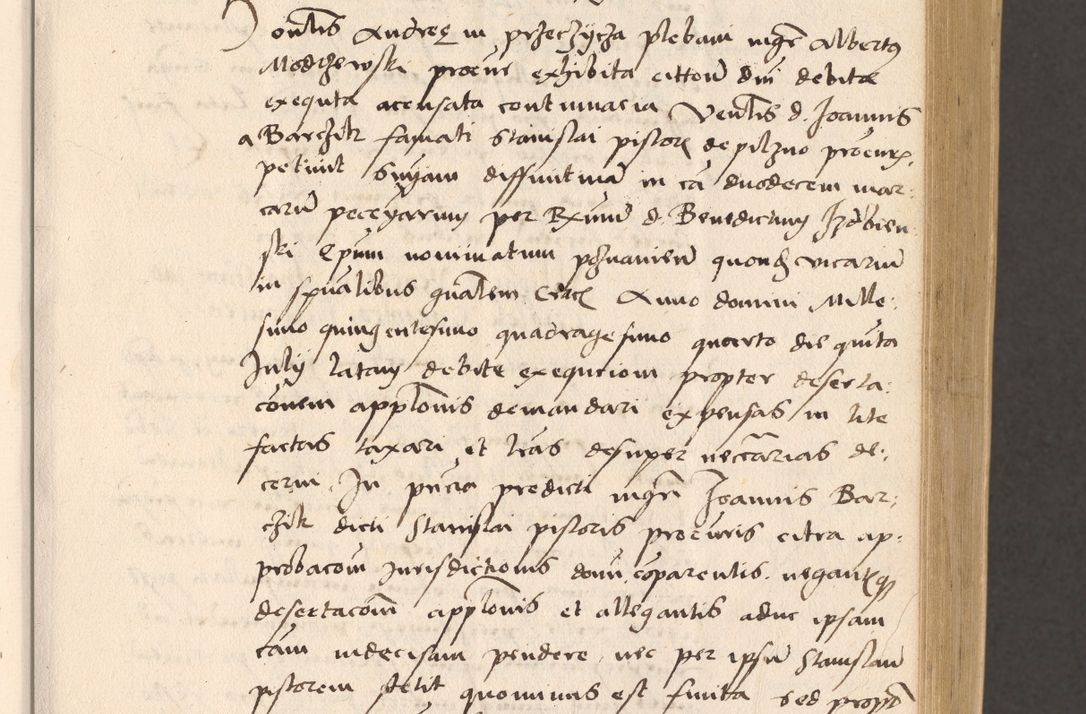 Andreę in przeczycza plebani mgr Albertus
Modzewski procur exhibita citton dni debitae
exequta acensata contumacia Ventis d. Joannis
a Barczik famati Stanislai pistor de pilzno procur
petivit Snyam diffinitivam in ca duodecem mar:
carū peccyariuꝫ per Rxmū d. Benedictum Izdbien
ski Epum nominatum vicariū
in spualibus gnalem Crac Anno domini Mille:
simo quingentesimo quadragesimo quarto die quinta
July latam debite exequciom propter deserta:
conem applonis demandari expensas in lite
factas taxari et lras desuper necčarias de:
cerni. In pncia predicti mgri Joannis Bar:
czik dicti Stanislai pistoris procuris citra ap:
probacom Jurisdictionis domi, coparentis. negantque
desertacom applonis et allegantis aduc ipsam
cam indecisam pendere, nec per ipsū Stanislaū
pistorem stetit quominus est finita sed propt